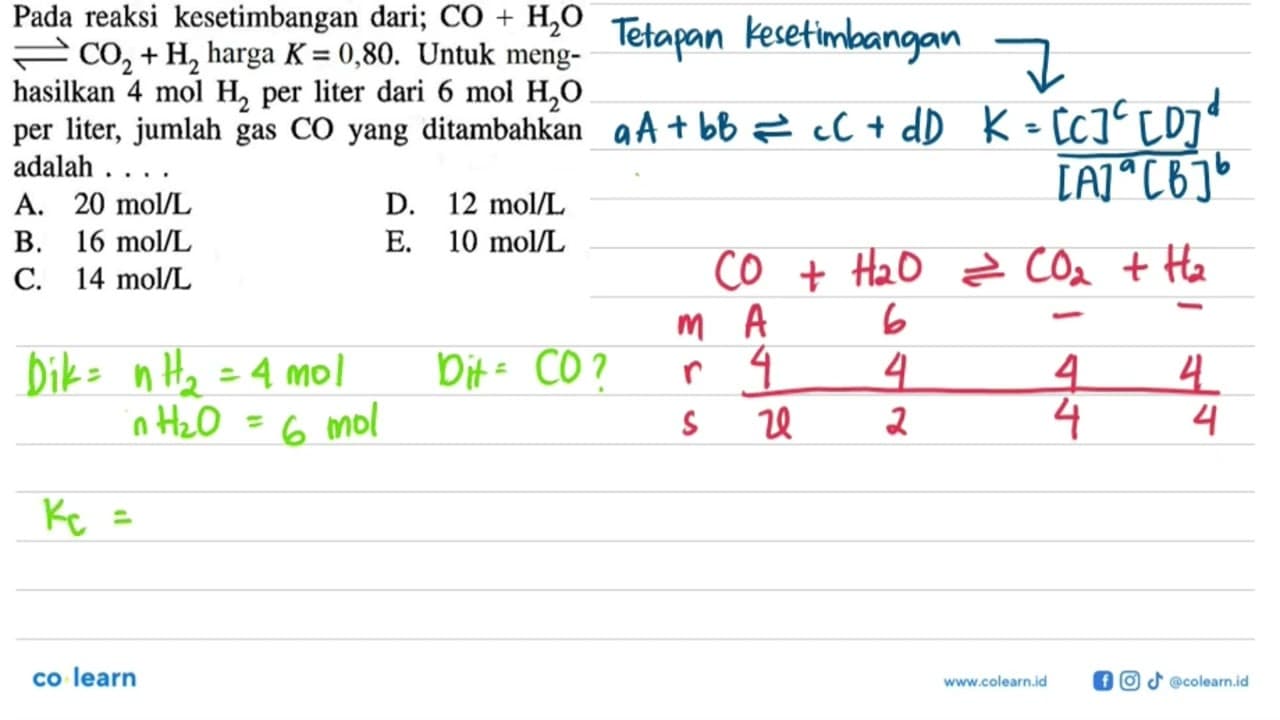 Pada reaksi kesetimbangan dari; CO + H₂O
⇌ CO₂ + H₂ harga K = 0,80. Untuk meng-
hasilkan 4 mol H₂ per liter dari 6 mol H₂O
per liter, jumlah gas CO yang ditambahkan
adalah . . . .
A. 20 mol/L D. 12 mol/L
B. 16 mol/L E. 10 mol/L
C. 14 mol/L
Tetapan kesetimbangan
aA + bB ⇌ cC + dD K = [C]ᶜ [D]ᵈ
[A]ᵃ [B]ᵇ
CO + H₂O ⇌ CO₂ + H₂
m A 6 - -
r 4 4 4 4
s 2 4 4
Dik = nH₂ = 4 mol Dit = CO?
nH₂O = 6 mol
Kc =
co learn
www.colearn.id @colearn.id